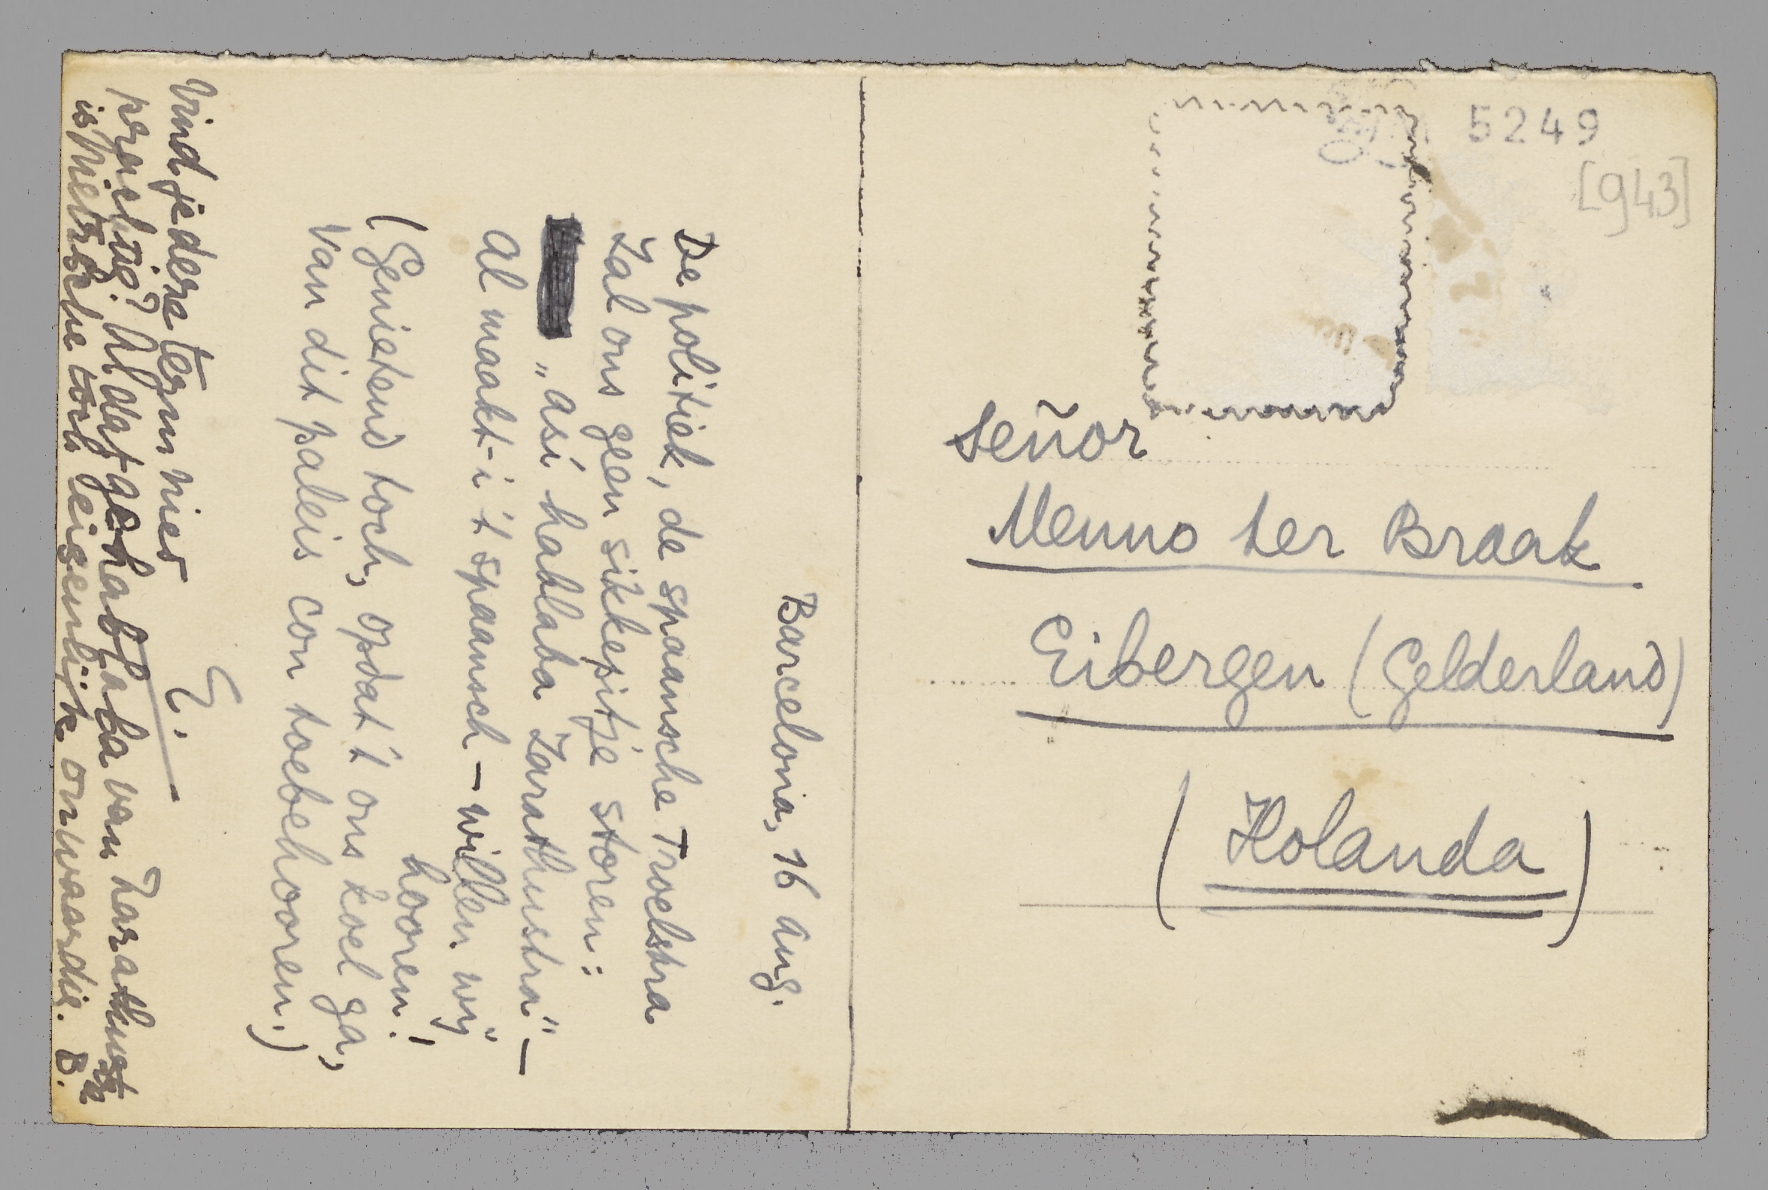 Barcelona, 16 Aug.
De politiek, de spaansche Troelstra
Zal ons geen sikkepitje storen:
„así hablaba Zarathustra" —
Al maakt-i 't spaansch — willen wij
hooren!
(Genietend toch, opdat 't ons koel ga,
Van dit paleis con toebehooren.)
E.
Vind je deze tegen nier
prachtig? Al dat gehablaba van Zarathustra
is Nietzsche toch eigenlijk onwaardig. B.
5249
[943]
Señor
Menno ter Braak
Eibergen (Gelderland)
(Holanda)